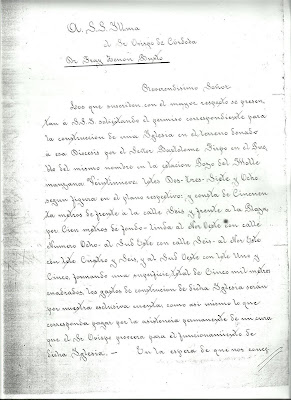 A. S. S. Illma
el Sr Obispo de Córdoba
Dr Fray Zenón Bustos
Reverendísimo Señor
Los que suscriben con el mayor respeto se presen-
tan á S.S.S. solicitando el permiso correspondiente para
la construccion de una Iglesia en el terreno donado
á esa Diocesis por el Señor Bartolome Firpo en el Pue-
blo del mismo nombre en la estacion Pozo del Molle
manzana Veintinueve. lotes Dos-Tres-Siete y Ocho
segun figura en el plano respectivo; y consta de Cincuen-
ta metros de frente a la calle Seis y frente á la Plaza,
por Cien metros de fondo- linda al Nor Oeste con calle
Numero Ocho: al Sud Este con calle Seis- al Nor Este
con lote Cuatro y Seis, y al Sud Oeste con lote Uno y
Cinco, formando una superficie total de Cinco mil metros
cuadrados, los gastos de construccion de dicha Iglesia serán
por nuestra esclusiva cuenta; como asi mismo lo que
corresponda pagar por la asistencia permanente de un cura
que el Sr Obispo proveera para el funcionamiento de
dicha Iglesia. — En la espera de que nos conce-